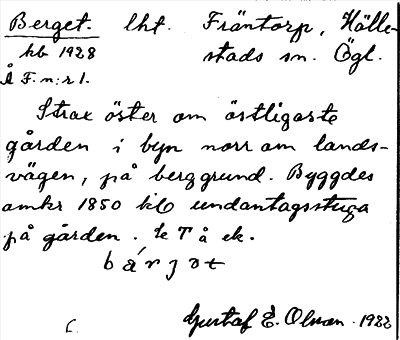 Berget. lht. Fräntorp, Hälle-
kb 1928 stads sn. Ögl.
Å F. n:r 1.
Strax öster om östligaste
gården i byn norr om lands-
vägen, på berggrund. Byggdes
omkr 1850 till undantagsstuga
på gården. Se T å ek.
bárjet
Gustaf E. Olsson. 1922